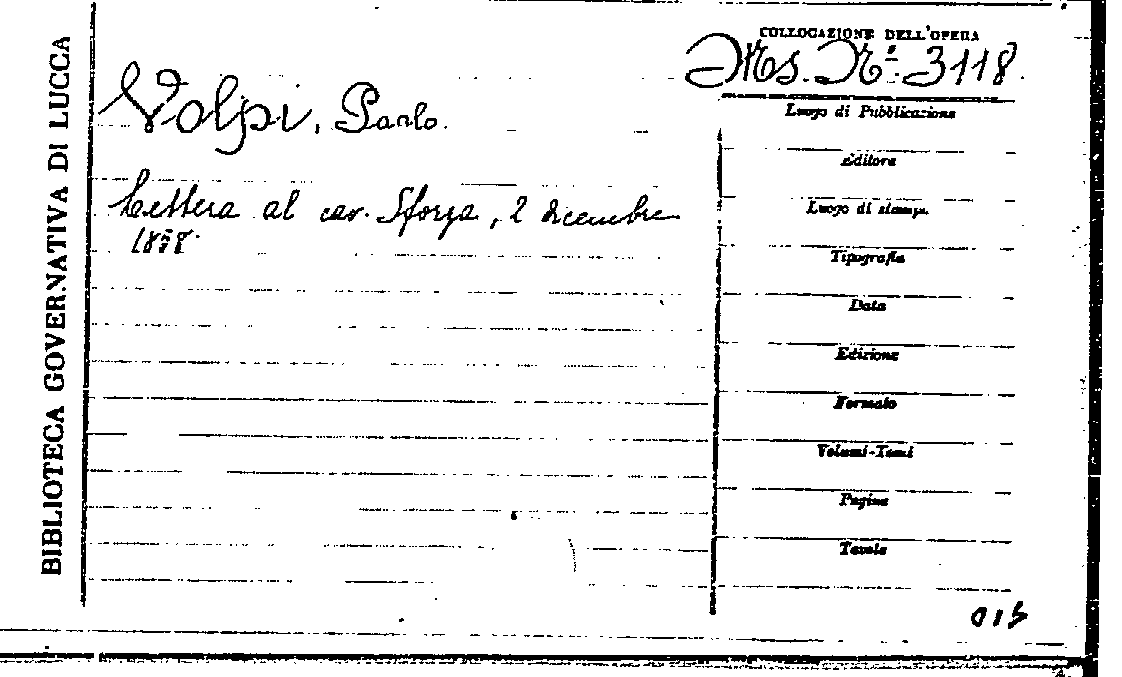 BIBLIOTECA GOVERNATIVA DI LUCCA
COLLOCAZIONE DELL'OPERA
Ms. Nº 3118.
Volpi, Paolo.
Lettera al cav. Sforza, 2 dicembre
1858.
Luogo di Pubblicazione
Editore
Luogo di stampa
Tipografia
Data
Edizione
Formato
Volumi-Tomi
Pagine
Tavole